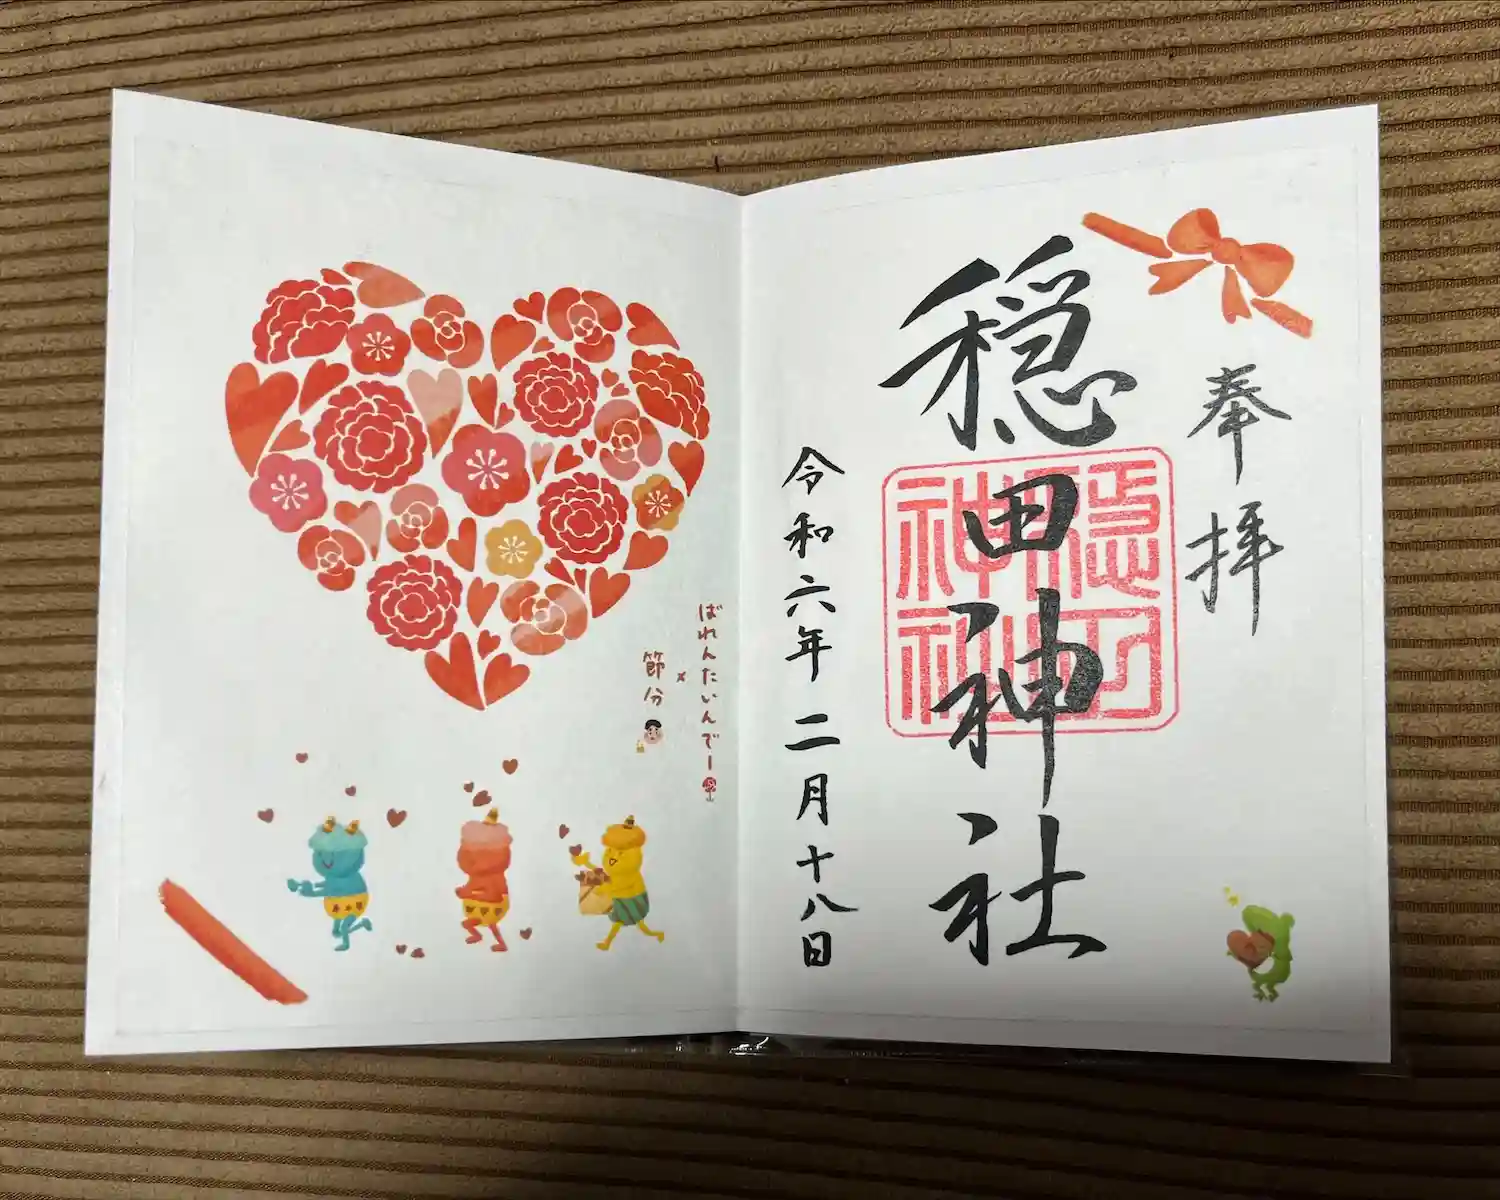 奉拝
穏田神社
穏田
神社
令和六年二月十八日
ばれんたいんでー
×
節分